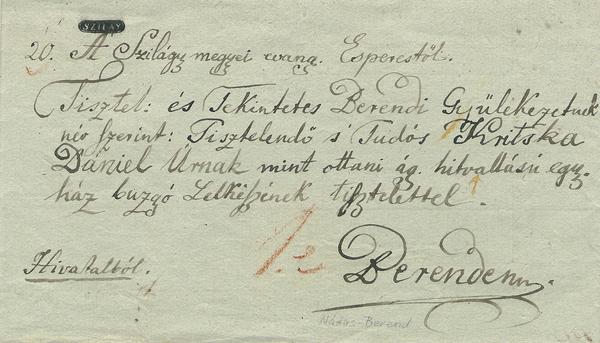 SZILÁY
20. A' Szilágy megyei evang. Esperestől.
Tisztel: és Tekintetes Berendi Gyülekezetnek
név szerint: Tisztelendő s Tudós Kritska
Dániel Urnak mint ottani ág. hitvallású egy-
ház buzgó Lelkészének tisztelettel.
Hivatalból.
Berenden.
Nádas-Berend